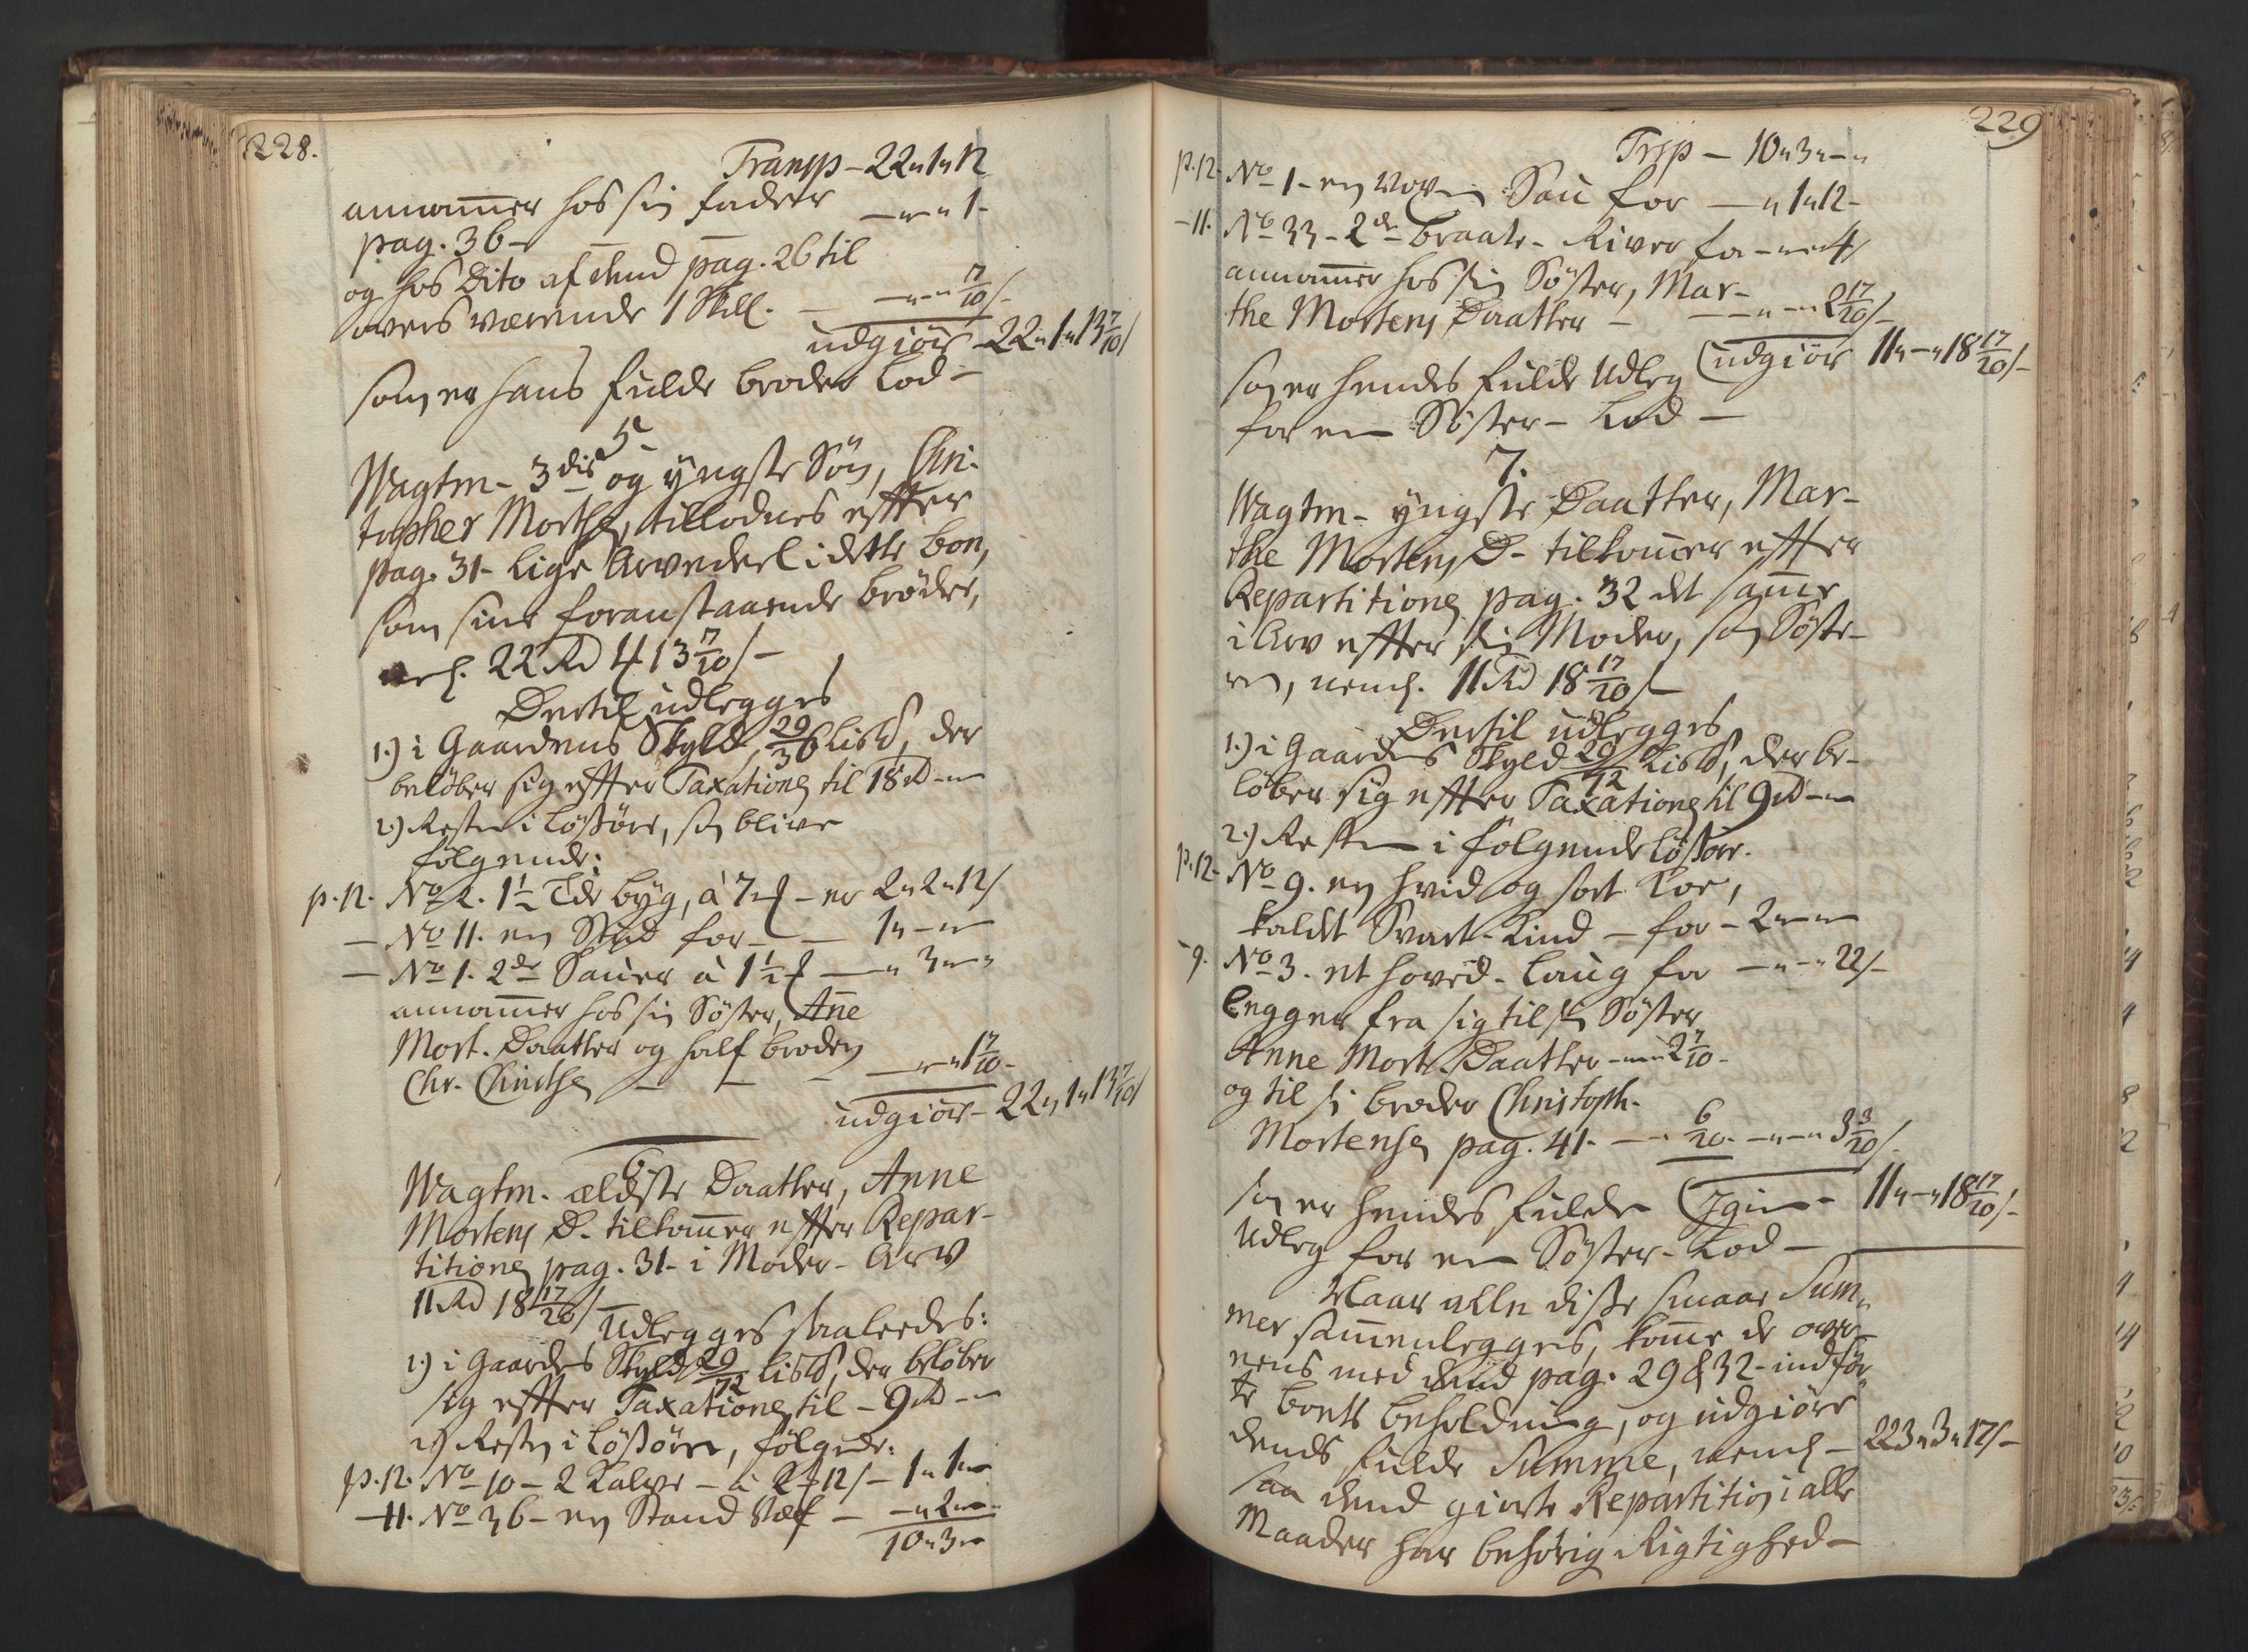 228.
Transp – 22 „ 1 „ 12
annammer hos sin fader — „ „ 1 –
pag. 36 –
og hos Dito af dend pag. 26 til
overs værende 1 Skill. — „ – „ 7/10 s –
udgiör – 22 „ 1 „ 13 7/10 s
som er hans fulde broder Lod –
5 –
Wagtm – 3die og yngste Sön, Chri-
topher Morths, tillodnes effter
pag. 31 – lige Arvedeel i dette boe,
som sine foranstaaende brödre,
nel. 22 Rd 4 13 7/10 s –
Dertil udlegges
1.) i Gaardens Skyld, 29/36 Lisd, der
belöber sig effter Taxationen til 18 Rd – „ –
2.) Resten i Lösöre, som blive
följende:
p. 12. No 2. 1 1/2 Tde byg, à 7 – er 2 „ 2 „ 12 s
— No 11. en Stud for – — 1 „ – „ –
— No 1. 2de Sauer à 1 1/2 — „ 3 „ – „
annammer hos sin Söster, Anne
Mort. Daatter og half broder
Chr. Christs – — – — „ – „ 1 7/10 –
udgiör – 22 „ 1 „ 13 7/10 s
6.
Wagtm. ældste Daatter, Anne
Mortens D. tilkommer effter Repar-
titionen pag. 31 – i Moder – Arv
11 Rd 18 17/20 s –
Udlegges saaledes:
1.) i Gaardens Skyld 29/72 Lisd, der belöber
sig effter Taxationen til – 9 Rd – „
2) Resten i Lösöre, fölgende:
p. 12. No 10 – 2 Kalve – à 2 12 s – 1 „ 1 „ –
– 11. No 36 – en Stand Væf – — „ 2 „ –
10 „ 3 „ –
229
Trsp – 10 „ 3 „ – „
p. 12 – No 1 – en Sau for — „ 1 „ 12 –
– 11. No 33 – 2de Braate – River for – „ – „ 4 s
annammer hos sin Söster, Mar-
the Mortens Daatter – — „ – „ 2 17/20 s –
udgiör 11 „ – „ 18 17/20 s –
som er hendes fulde Udleg
for en Söster – Lod –
7.
Wagtm – yngste Daatter, Mar-
the Mortens D – tilkommer effter
Repartitionen pag. 32 det samme
i Arv effter sin Moder, som Söste-
ren, neml. 11 Rd 18 17/20 s –
Dertil udlegges
1.) i Gaardens Skyld 29/72 Lisd, der be-
löber sig effter Taxationen til 9 Rd – „
2.) Resten i fölgende Lösöre.
p. 12 – No 9. en hvid og sort Koe,
kaldet Svart – Kind – for – 2 „ – „ –
– 9. No 3. et hoved – Laug for — „ – „ 22 s –
Legger fra sig til sin Söster
Anne Mort. Daatter – „ – „ 2 7/10 –
og til sin broder Christoph.
Mortensen pag. 41 – — „ 6/20 – „ – „ 3 3/20 s
11 „ – „ 18 17/20 s –
som er hendes fulde
Udleg for en Söster – Lod –
Naar alle disse smaae Sum-
mer sammenlegges, komme de over-
eens med dend pag. 29 & 32 – indför-
te boets beholdning, og udgiöre
dends fulde Summe, neml – 223 „ 3 „ 12 s –
saa dend giorte Repartition i alle
Maader har behörig Rigtighed –